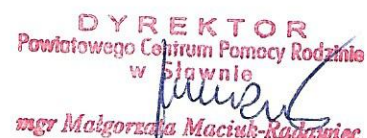 DYREKTOR
Powiatowego Centrum Pomocy Rodzinie
w Sławnie
mgr Małgorzata Maciuk-Radawiec